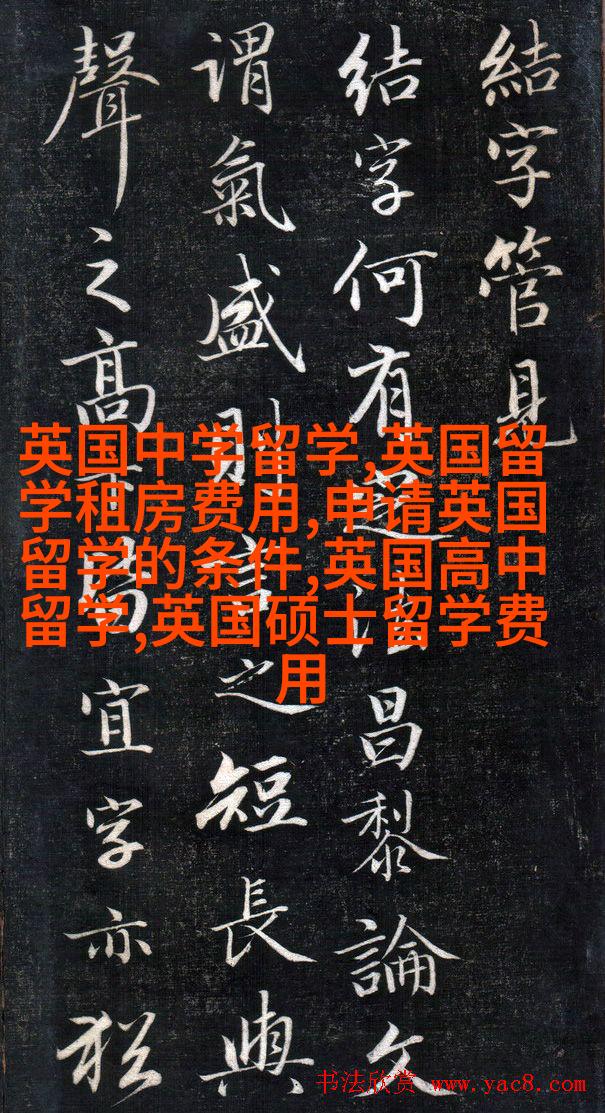 結字管見
结字何有法昌黎論文
謂氣盛則言之短長與
聲之高下皆宜字亦猶
英国中学留学,英国留
学租房费用,申请英国
留学的条件,英国高中
留学,英国硕士留学费
用
书法欣赏 www.yac8.com